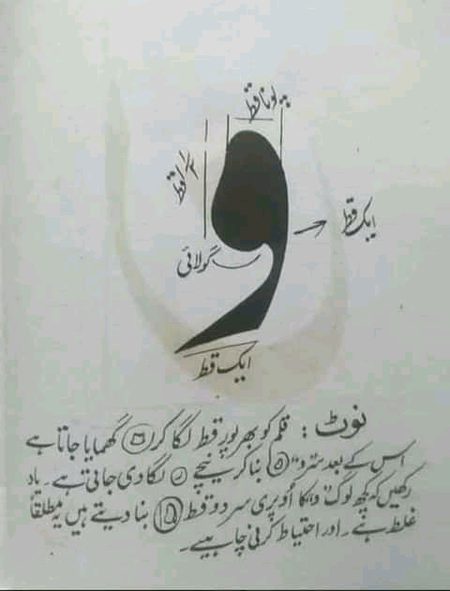 پونا قط
قط
و
ایک قط
گولائی
ایک قط
نوٹ: قلم کو بھرپور قط لگا کر گھمایا جاتا ہے
اس کے بعد سرِ و بنا کر نیچے ر لگا دی جاتی ہے۔ یاد
رکھیں کہ کچھ لوگ و کا اُوپری سر دو قط بنا دیتے ہیں یہ مطلقاً
غلط ہے۔ اور احتیاط کرنی چاہیے۔